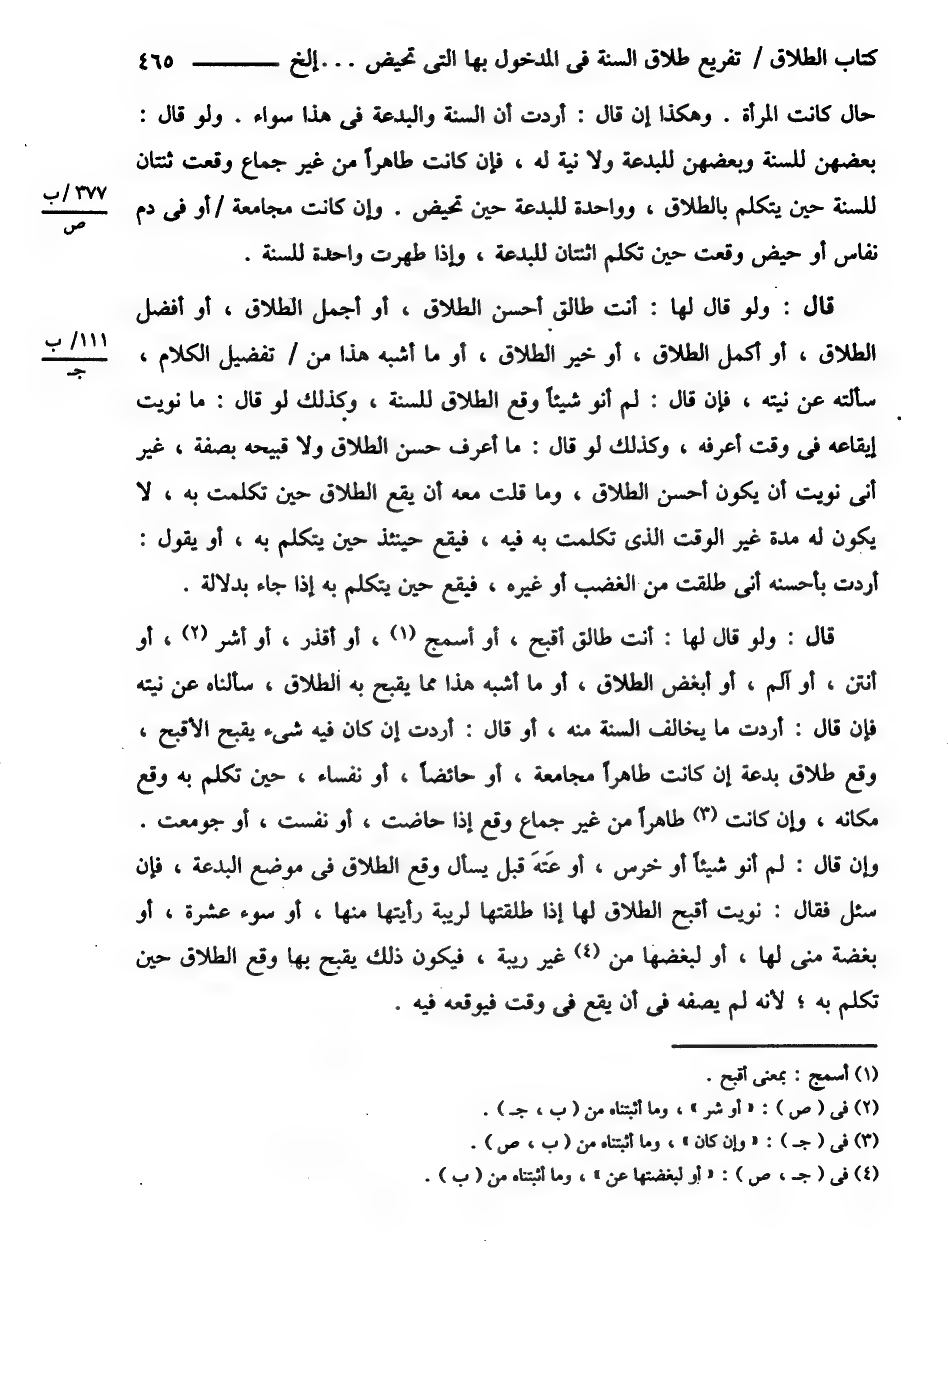 كتاب الطلاق / تفريع طلاق السنة فى المدخول بها التى تحيض ... إلخ ــــــــــ ٤٦٥
حال كانت المرأة . وهكذا إن قال : أردت أن السنة والبدعة فى هذا سواء . ولو قال :
بعضهن للسنة وبعضهن للبدعة ولا نية له ، فإن كانت طاهراً من غير جماع وقعت ثنتان
للسنة حين يتكلم بالطلاق ، وواحدة للبدعة حين تحيض . وإن كانت مجامعة / أو فى دم
٣٧٧ /ب
ص
نفاس أو حيض وقعت حين تكلم اثنتان للبدعة ، وإذا طهرت واحدة للسنة .
قال : ولو قال لها : أنت طالق أحسن الطلاق ، أو أجمل الطلاق ، أو أفضل
الطلاق ، أو أكمل الطلاق ، أو خير الطلاق ، أو ما أشبه هذا من / تفضيل الكلام ،
١١١/ ب
جـ
سألته عن نيته ، فإن قال : لم أنو شيئاً وقع الطلاق للسنة ، وكذلك لو قال : ما نويت
إيقاعه فى وقت أعرفه ، وكذلك لو قال : ما أعرف حسن الطلاق ولا قبيحه بصفة ، غير
أنى نويت أن يكون أحسن الطلاق ، وما قلت معه أن يقع الطلاق حين تكلمت به ، لا
يكون له مدة غير الوقت الذى تكلمت به فيه ، فيقع حينئذ حين يتكلم به ، أو يقول :
أردت بأحسنه أنى طلقت من الغضب أو غيره ، فيقع حين يتكلم به إذا جاء بدلالة .
قال : ولو قال لها : أنت طالق أقبح ، أو أسمج (١) ، أو أقذر ، أو أشر (٢) ، أو
أنتن ، أو آلم ، أو أبغض الطلاق ، أو ما أشبه هذا مما يقبح به الطلاق ، سألناه عن نيته
فإن قال : أردت ما يخالف السنة منه ، أو قال : أردت إن كان فيه شىء يقبح الأقبح ،
وقع طلاق بدعة إن كانت طاهراً مجامعة ، أو حائضاً ، أو نفساء ، حين تكلم به وقع
مكانه ، وإن كانت (٣) طاهراً من غير جماع وقع إذا حاضت ، أو نفست ، أو جومعت .
وإن قال : لم أنو شيئاً أو خرس ، أو عَتَهَ قبل يسأل وقع الطلاق فى موضع البدعة ، فإن
سئل فقال : نويت أقبح الطلاق لها إذا طلقتها لريبة رأيتها منها ، أو سوء عشرة ، أو
بغضة منى لها ، أو لبغضها من (٤) غير ريبة ، فيكون ذلك يقبح بها وقع الطلاق حين
تكلم به ؛ لأنه لم يصفه فى أن يقع فى وقت فيوقعه فيه .
(١) أسمج : بمعنى أقبح .
(٢) فى ( ص ) : « أو شر » ، وما أثبتناه من ( ب ، جـ ) .
(٣) فى ( جـ ) : « وإن كان » ، وما أثبتناه من ( ب ، ص ) .
(٤) فى ( جـ ، ص ) : « أو لبغضتها عن » ، وما أثبتناه من ( ب ) .